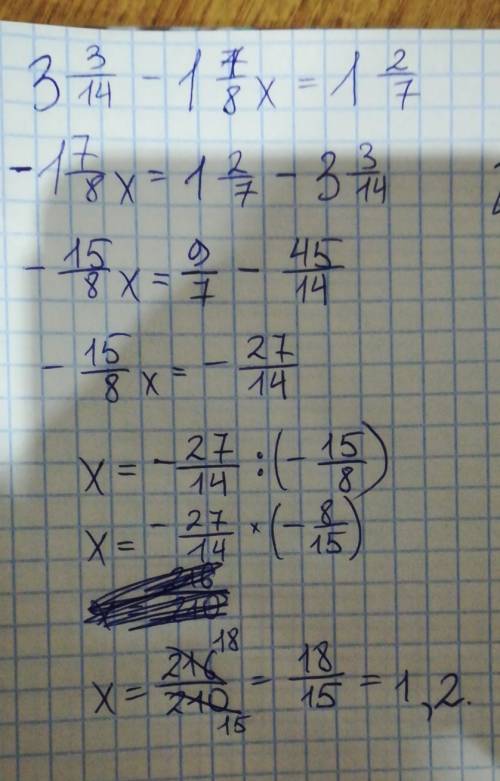 3 3/14 - 1 7/8 x = 1 2/7
- 1 7/8 x = 1 2/7 - 3 3/14
- 15/8 x = 9/7 - 45/14
- 15/8 x = - 27/14
x = - 27/14 : (- 15/8)
x = - 27/14 × (- 8/15)
x = 216/210 18/15 = 18/15 = 1,2.